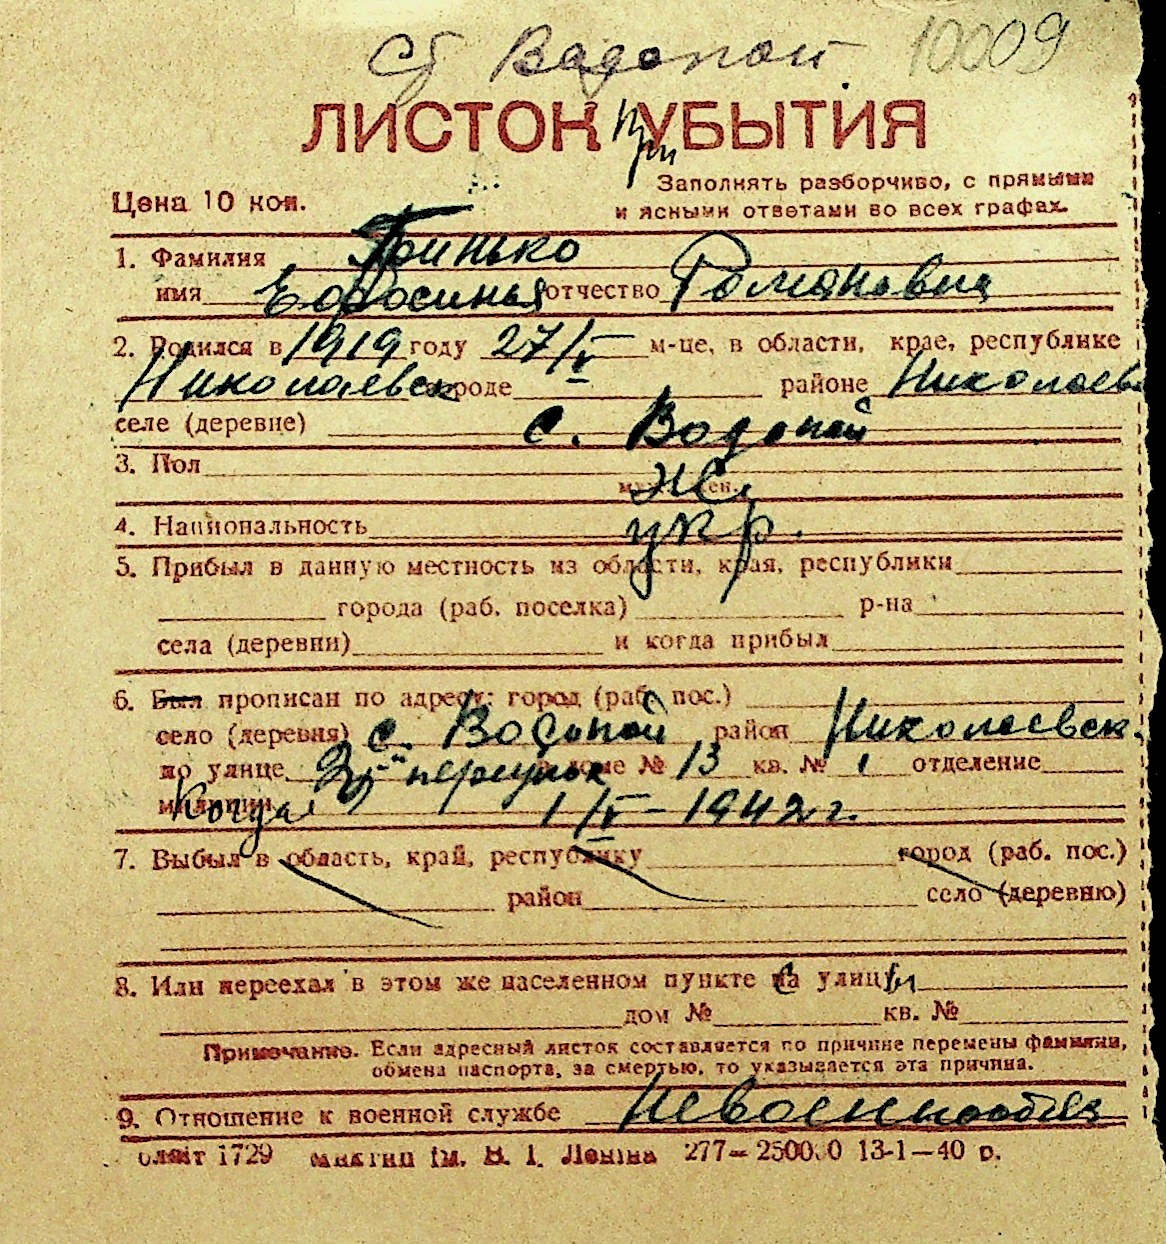 ст Водопой 10009
ЛИСТОК При УБЫТИЯ
Заполнять разборчиво, с прямыми
Цена 10 коп.
и ясными ответами во всех графах.
1. Фамилия Гринько
имя Ефросинья отчество Романовна
2. Родился в 1919 году 27/V м-це, в области, крае, республике
Николаевск городе районе Николаев
селе (деревне) с. Водопой
3. Пол Ж
4. Национальность укр.
5. Прибыл в данную местность из области, края, республики
города (раб. поселка) р-на
села (деревни) и когда прибыл
6. Был прописан по адресу: город (раб. пос.)
село (деревня) с. Водопой район Николаевск.
по улице переулок доме № 13 кв. № 1 отделение
милиции Когда 1/V-1942 г.
7. Выбыл в область, край, республику город (раб. пос.)
район село (деревню)
8. Или переехал в этом же населенном пункте с улицы
дом № кв. №
Примечание. Если адресный листок составляется по причине перемены фамилии,
обмена паспорта, за смертью, то указывается эта причина.
9. Отношение к военной службе Невоеннообяз
Облліт 1729 ім. В. І. Леніна 277—250000 13-1—40 р.